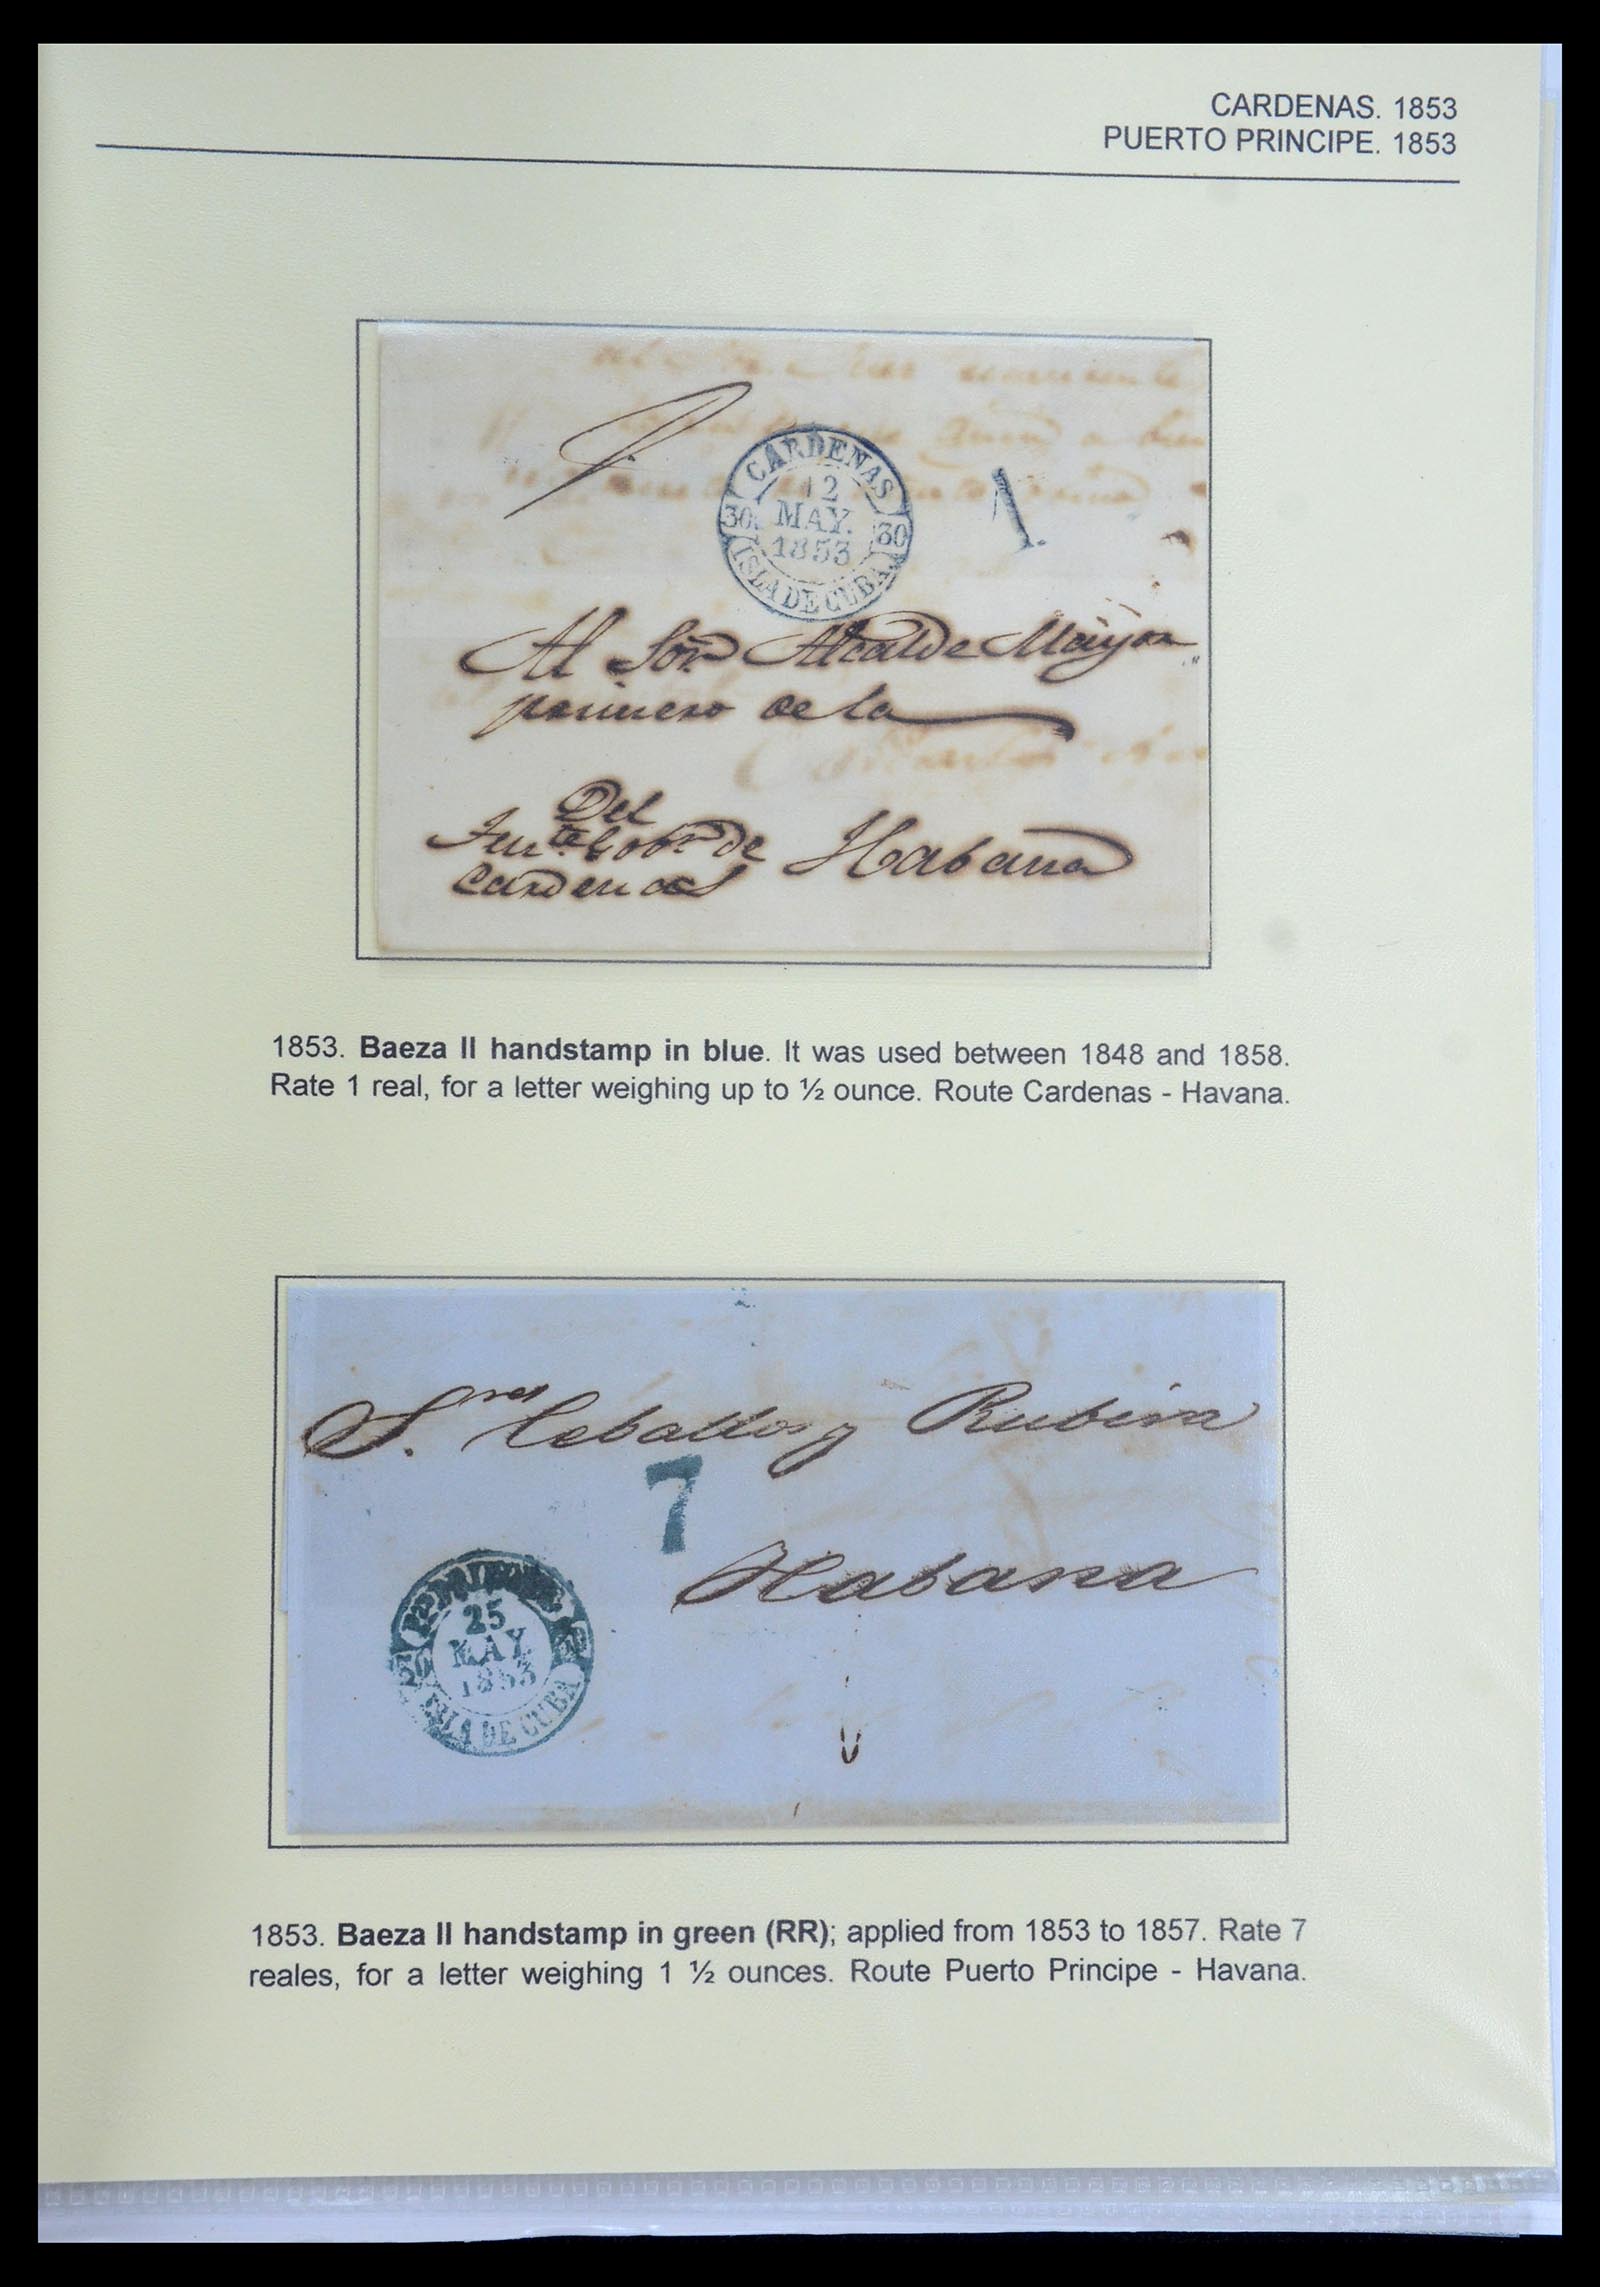 CARDENAS. 1853
PUERTO PRINCIPE. 1853
CARDENAS
12
MAY.
1853
30 30
ISLA DE CUBA
1.
Al Sor. Alcalde Mayor
primero de la
Del
Ten.te Gobr. de
Cardenas
Habana
1853. Baeza II handstamp in blue. It was used between 1848 and 1858.
Rate 1 real, for a letter weighing up to ½ ounce. Route Cardenas - Havana.
S.res Ceballos y Rubira
7
Habana
25
MAY
1853
ISLA DE CUBA
1853. Baeza II handstamp in green (RR); applied from 1853 to 1857. Rate 7
reales, for a letter weighing 1 ½ ounces. Route Puerto Principe - Havana.